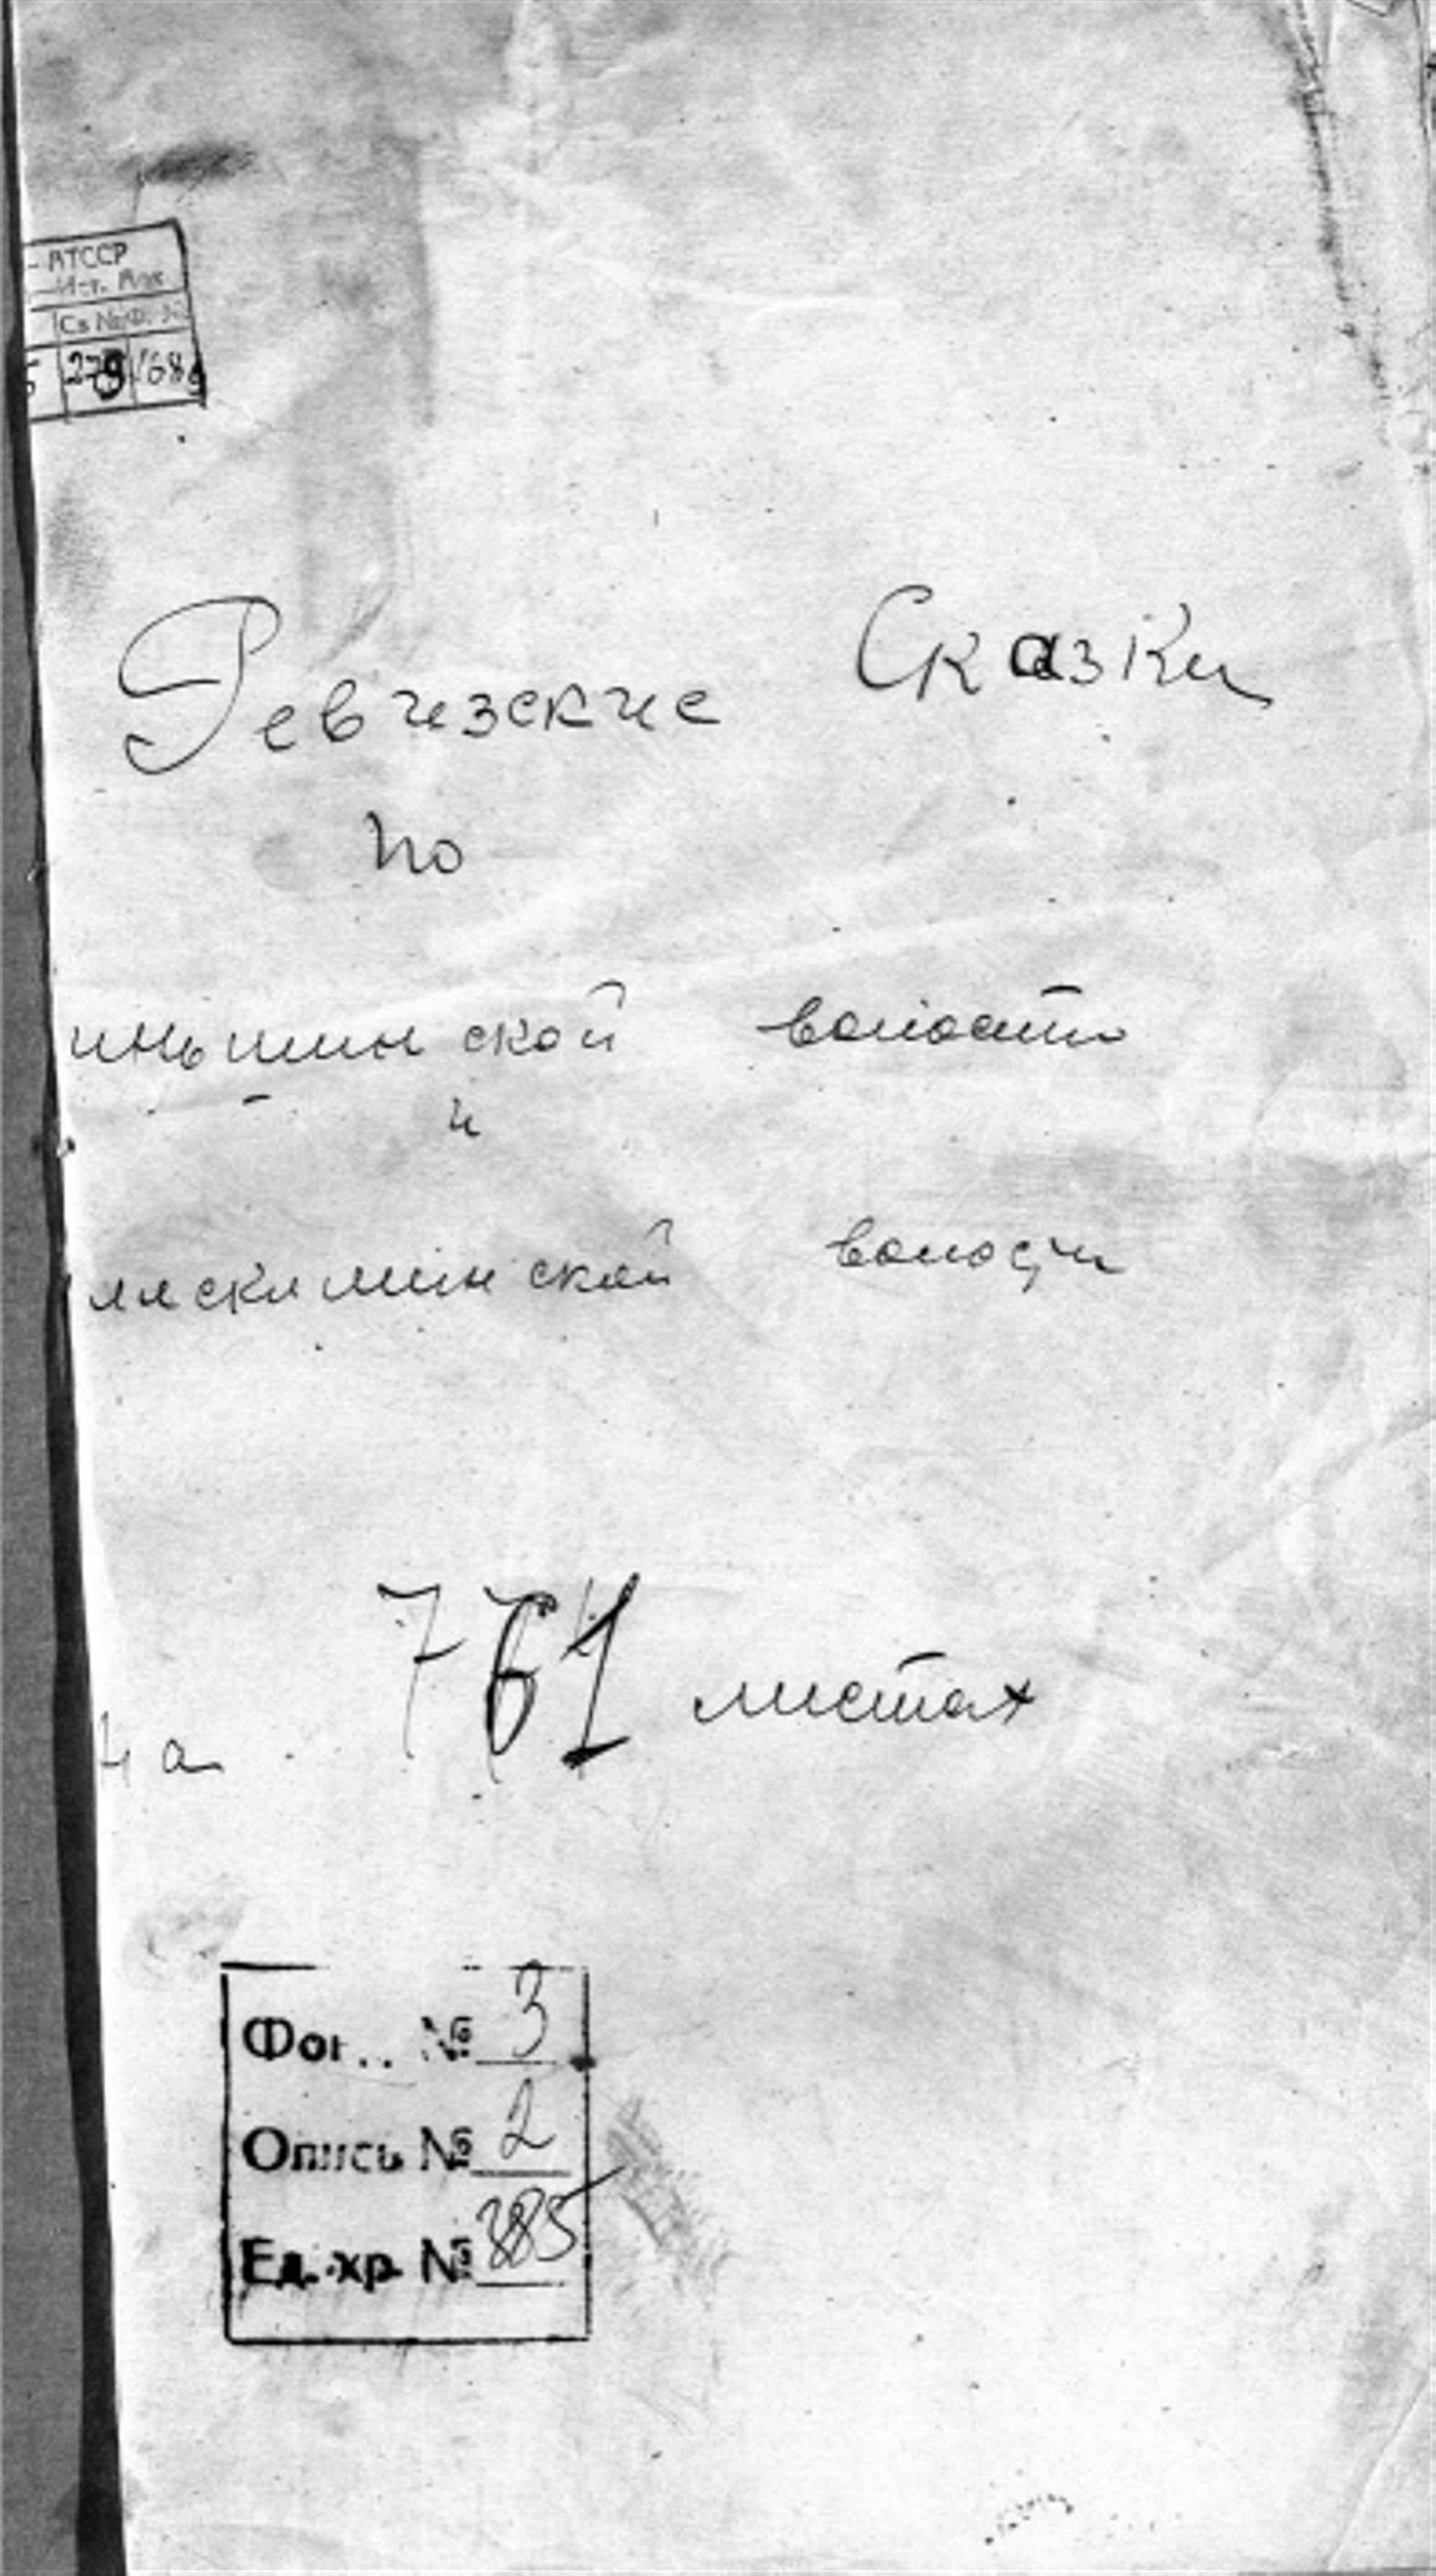 АТССР
Ист. Арх.
Св № Ф. №
5 279 1684
Ревизские Сказки
по
иньшинской волости
и
волости
на 761 листах
Фонд № 3
Опись № 2
Ед. хр. № 385